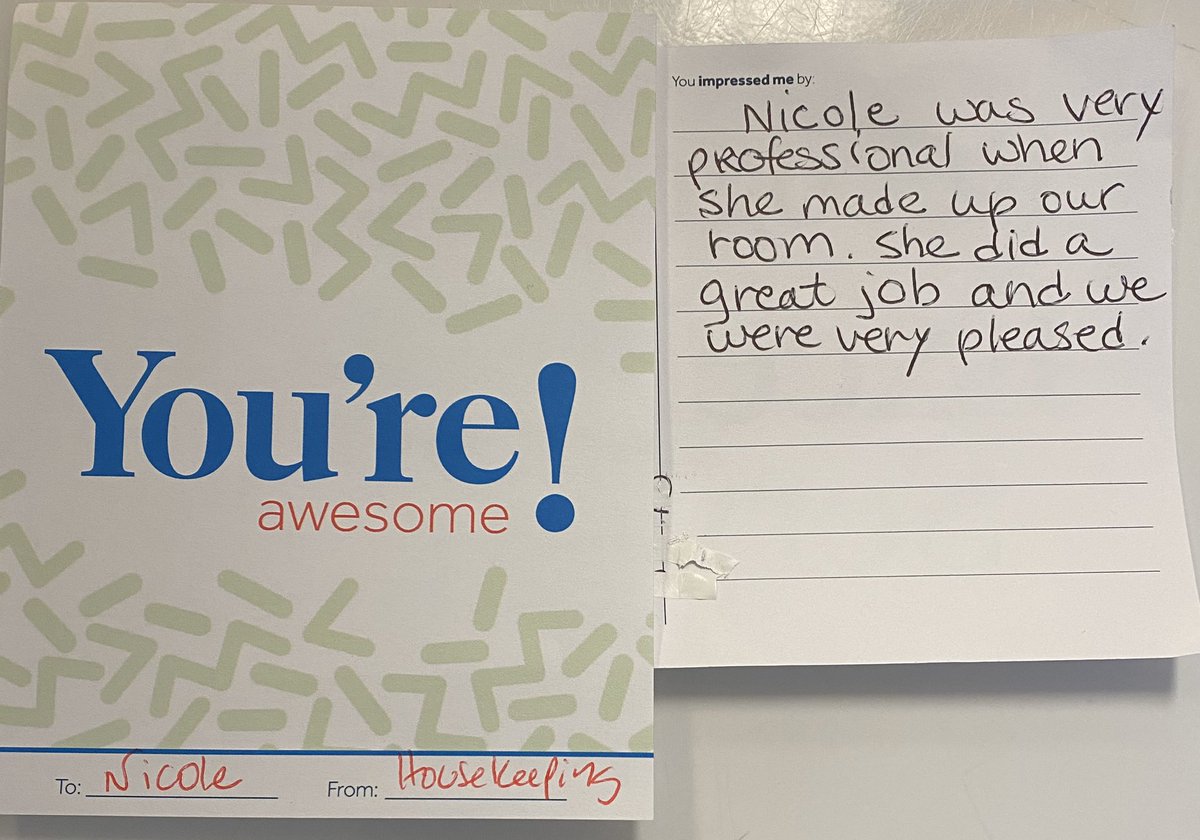 You're!
awesome
To: Nicole From: Housekeeping
You impressed me by:
Nicole was very
professional when
she made up our
room. She did a
great job and we
were very pleased.